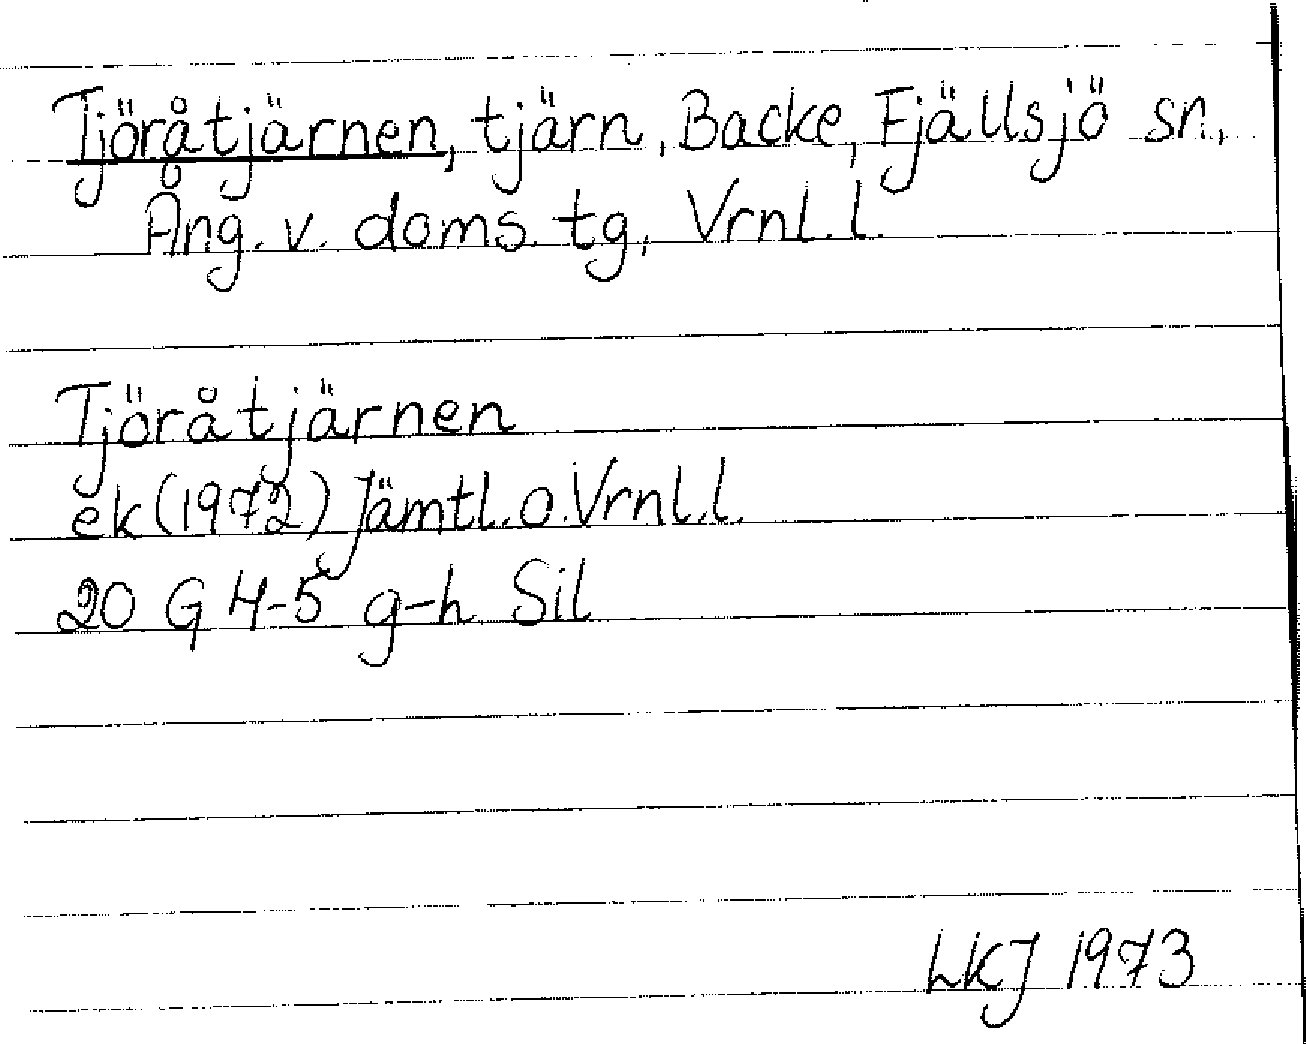 Tjöråtjärnen, tjärn, Backe, Fjällsjö sn,
Ång. v. doms. tg, Vrnl. l.
Tjöråtjärnen
ek(1972) Jämtl. o. Vrnl. l.
20 G 4-5 g-h Sil
LKJ 1973